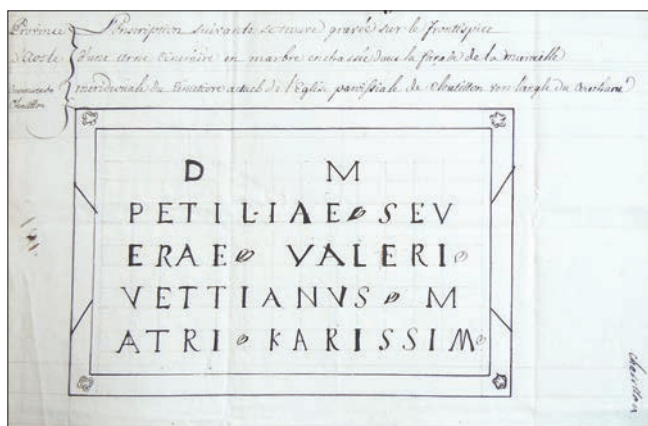 Province d'Aoste
L'Inscription suivante se trouve gravée sur le frontispice
d'une urne cinéraire en marbre enchassée dans la façade de la muraille
méridionale du Cimetière actuel de l'Eglise paroissiale de Chatillon vers l'angle du
D M
PETILIAE SEV
ERAE VALERI
VETTIANVS M
ATRI KARISSIM
chatillon